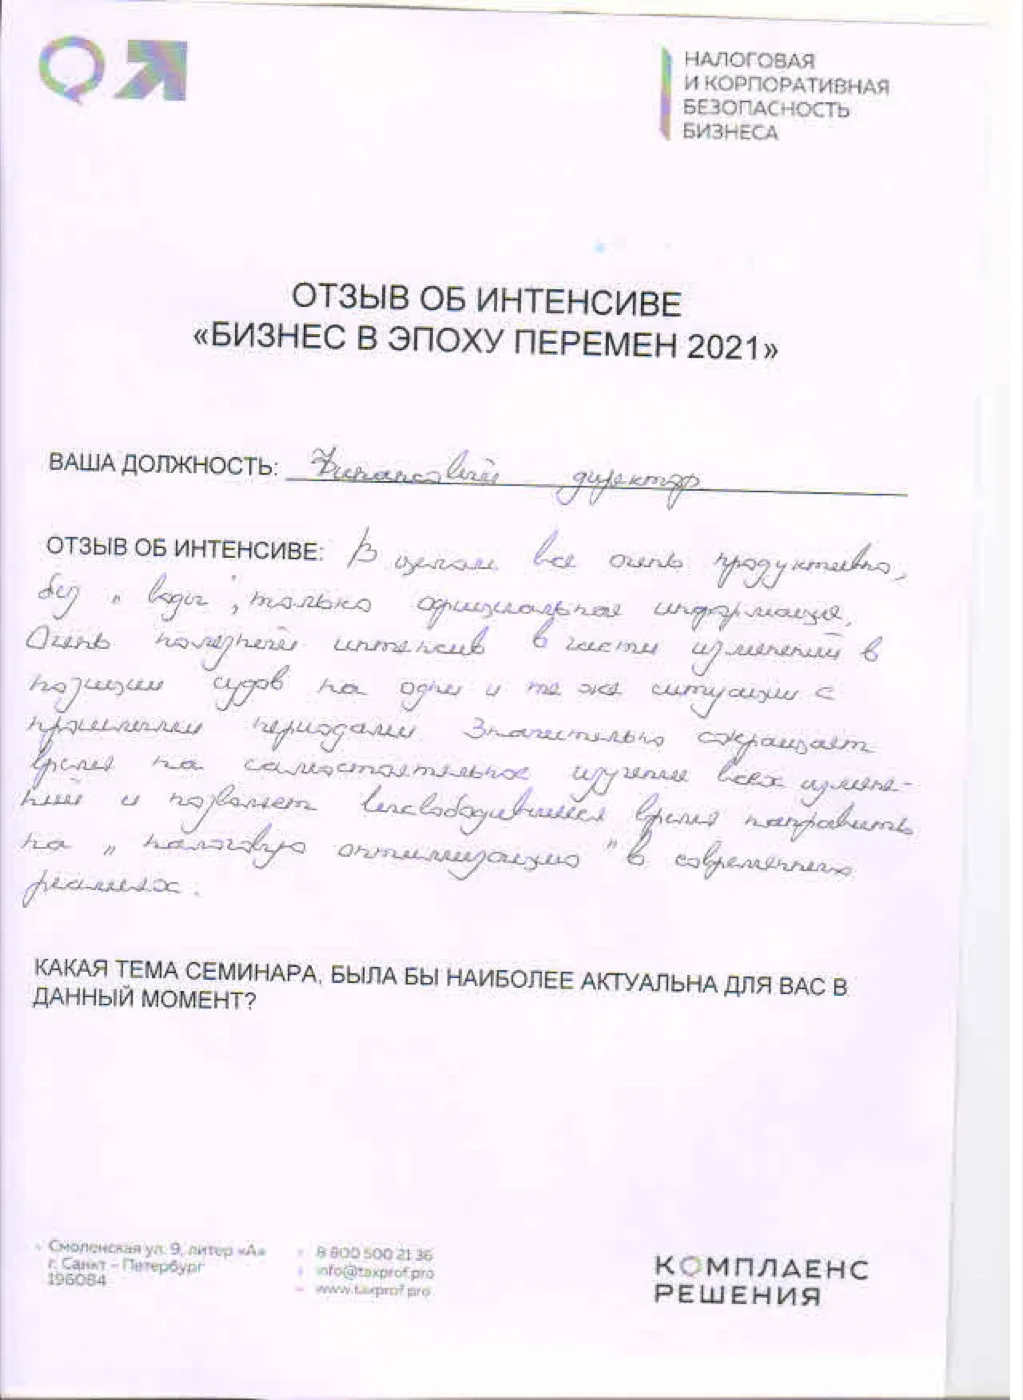 НАЛОГОВАЯ
И КОРПОРАТИВНАЯ
БЕЗОПАСНОСТЬ
БИЗНЕСА
ОТЗЫВ ОБ ИНТЕНСИВЕ
«БИЗНЕС В ЭПОХУ ПЕРЕМЕН 2021»
ВАША ДОЛЖНОСТЬ: Финансовый директор
ОТЗЫВ ОБ ИНТЕНСИВЕ: В целом все очень продуктивно,
без „воды", только официальная информация.
Очень полезный интенсив в части изменений в
позиции судов на одни и те же ситуации с
прошлыми периодами. Значительно сокращает
время на самостоятельное изучение всех измене-
ний и позволяет высвободившееся время направить
на „налоговую оптимизацию" в современных
реалиях.
КАКАЯ ТЕМА СЕМИНАРА, БЫЛА БЫ НАИБОЛЕЕ АКТУАЛЬНА ДЛЯ ВАС В
ДАННЫЙ МОМЕНТ?
Смоленская ул. 9, литер «А»
г. Санкт – Петербург
196084
8 800 500 21 36
info@taxprof.pro
www.taxprof.pro
КОМПЛАЕНС
РЕШЕНИЯ